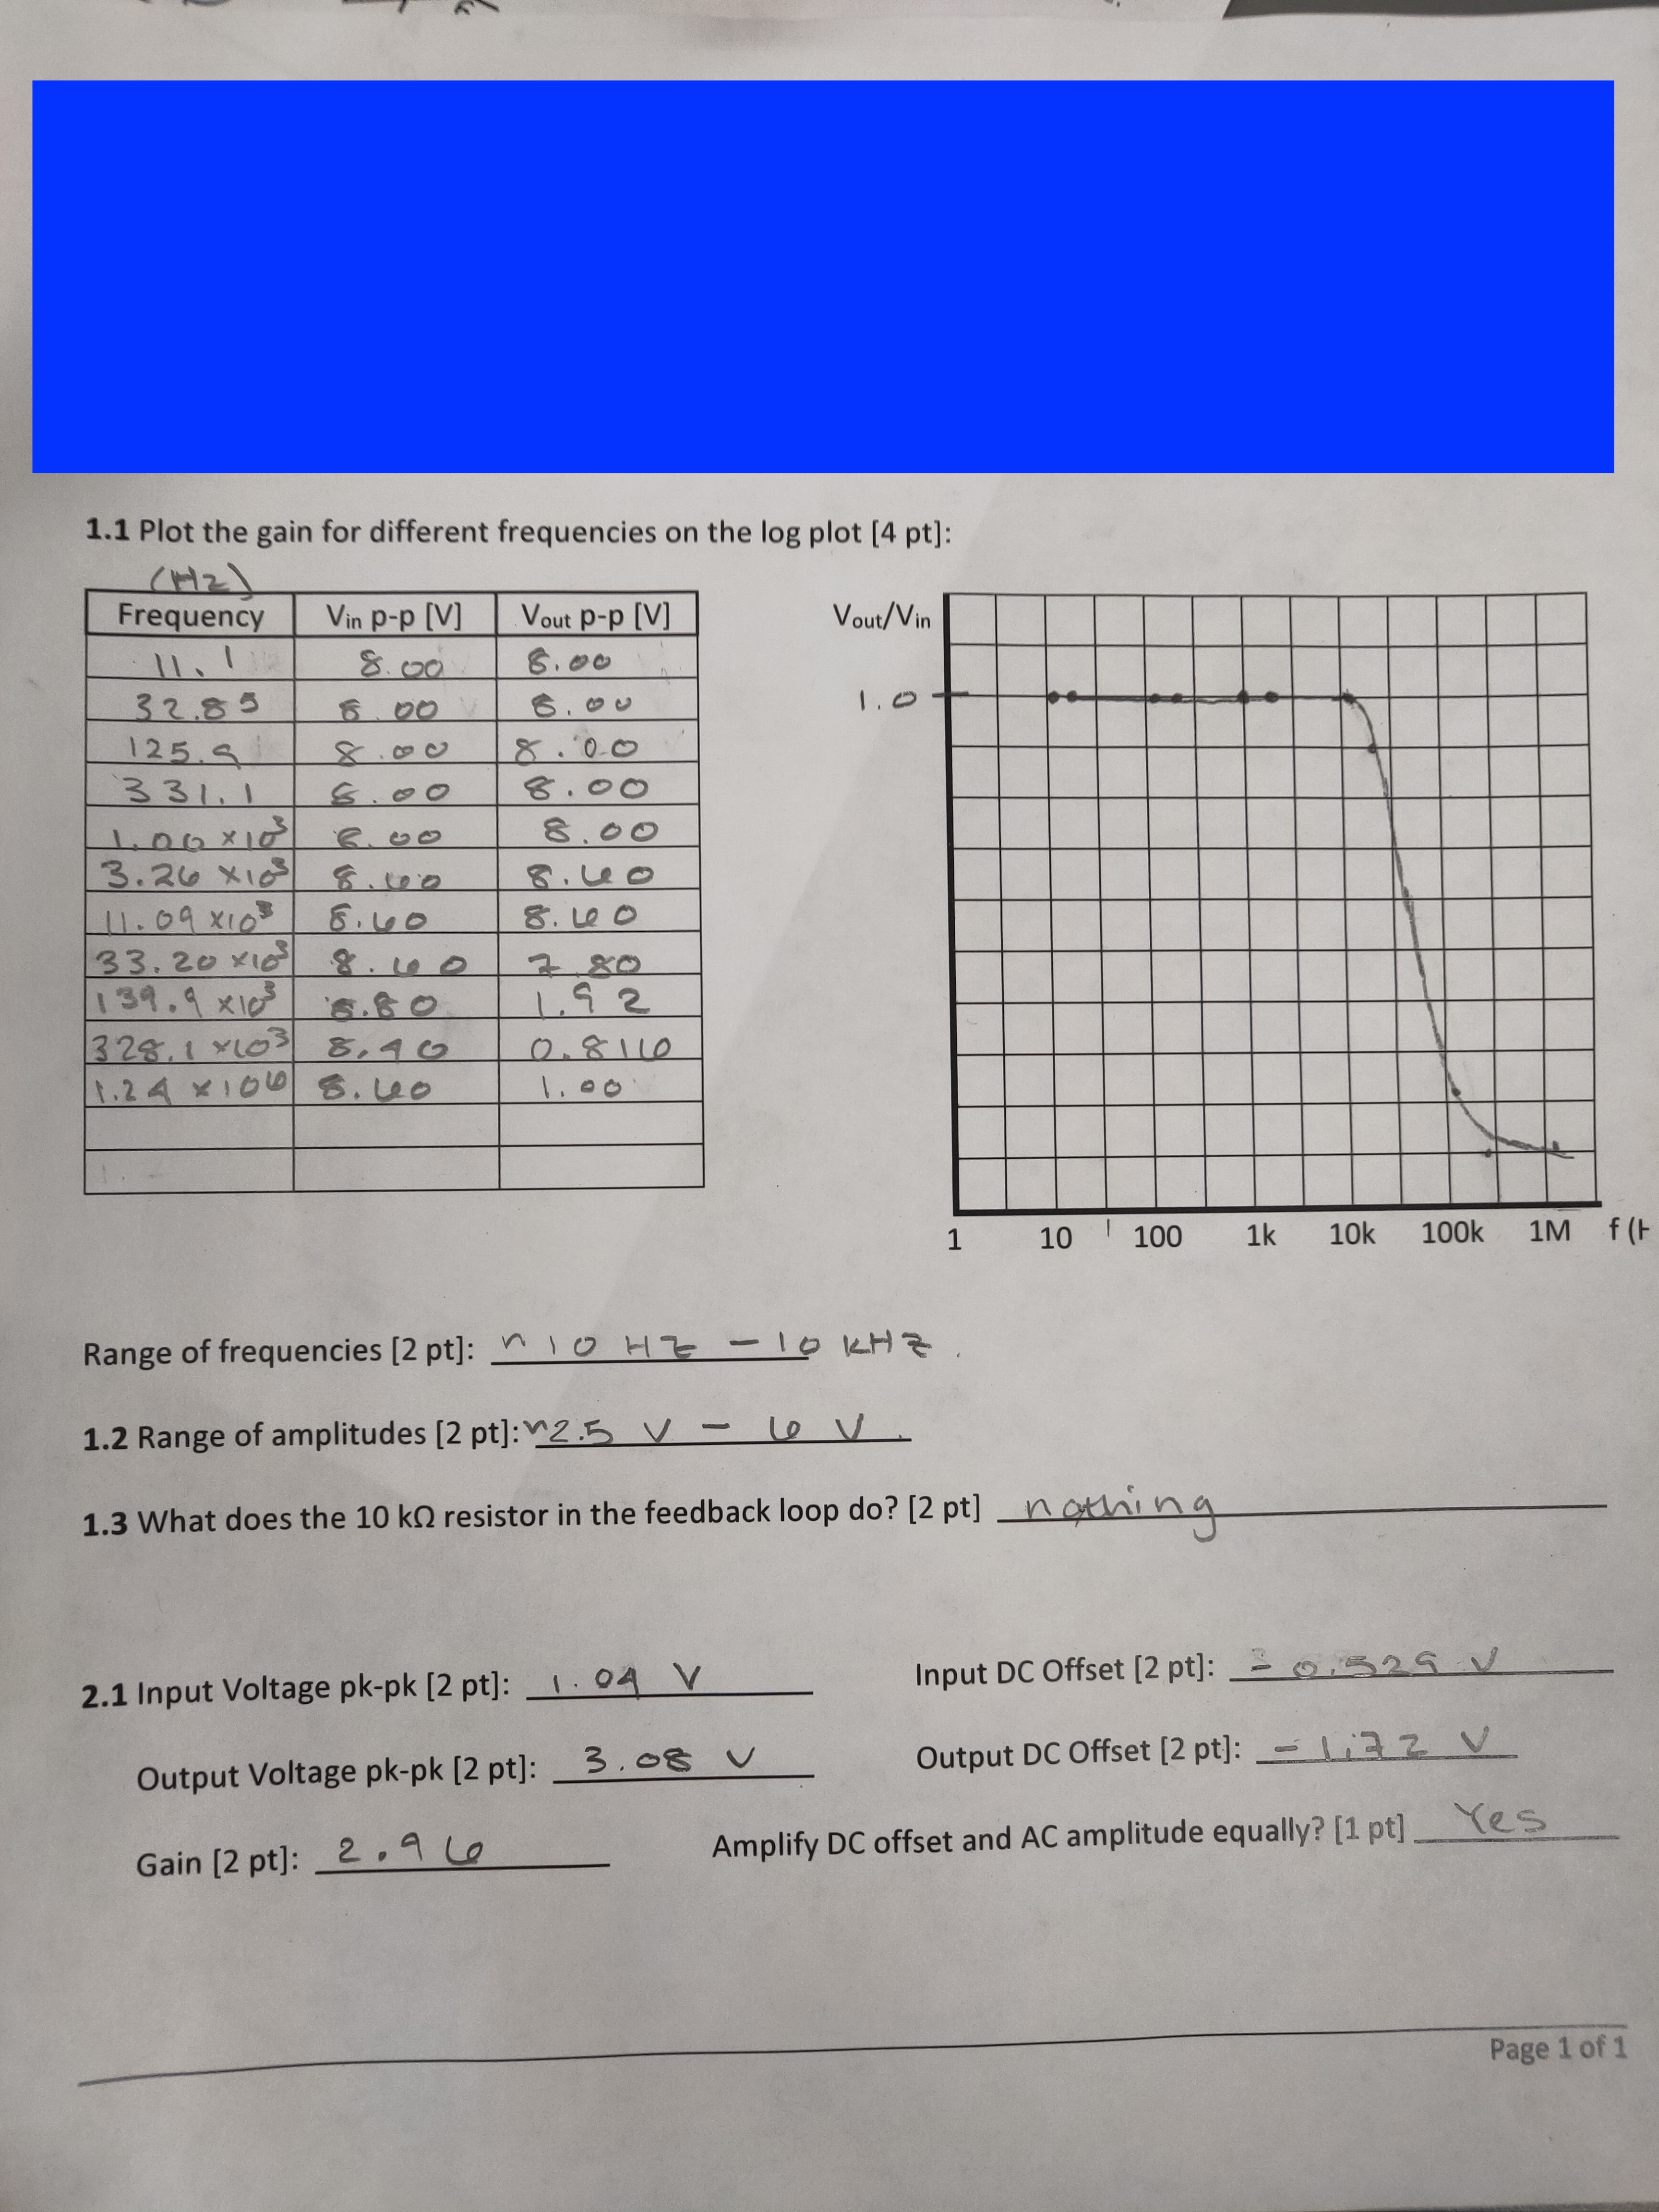 1.1 Plot the gain for different frequencies on the log plot [4 pt]:
(Hz)
Frequency Vin p-p [V] Vout p-p [V]
11.1 8.00 8.00
32.85 8.00 8.00
125.9 8.00 8.00
331.1 8.00 8.00
1.00 ×10³ 8.00 8.00
3.26 ×10³ 8.60 8.60
11.09 ×10³ 8.60 8.60
33.20 ×10³ 8.60 7.80
139.9 ×10³ 8.80 1.92
328.1 ×10³ 8.40 0.816
1.24 ×106 8.60 1.00
Vout/Vin
1.0
1 10 100 1k 10k 100k 1M f (H
Range of frequencies [2 pt]: ~10 Hz - 10 kHz.
1.2 Range of amplitudes [2 pt]: ~2.5 V - 6 V.
1.3 What does the 10 kΩ resistor in the feedback loop do? [2 pt] nothing
2.1 Input Voltage pk-pk [2 pt]: 1.04 V Input DC Offset [2 pt]: -0.529 V
Output Voltage pk-pk [2 pt]: 3.08 V Output DC Offset [2 pt]: -1.72 V
Gain [2 pt]: 2.96 Amplify DC offset and AC amplitude equally? [1 pt] Yes
Page 1 of 1